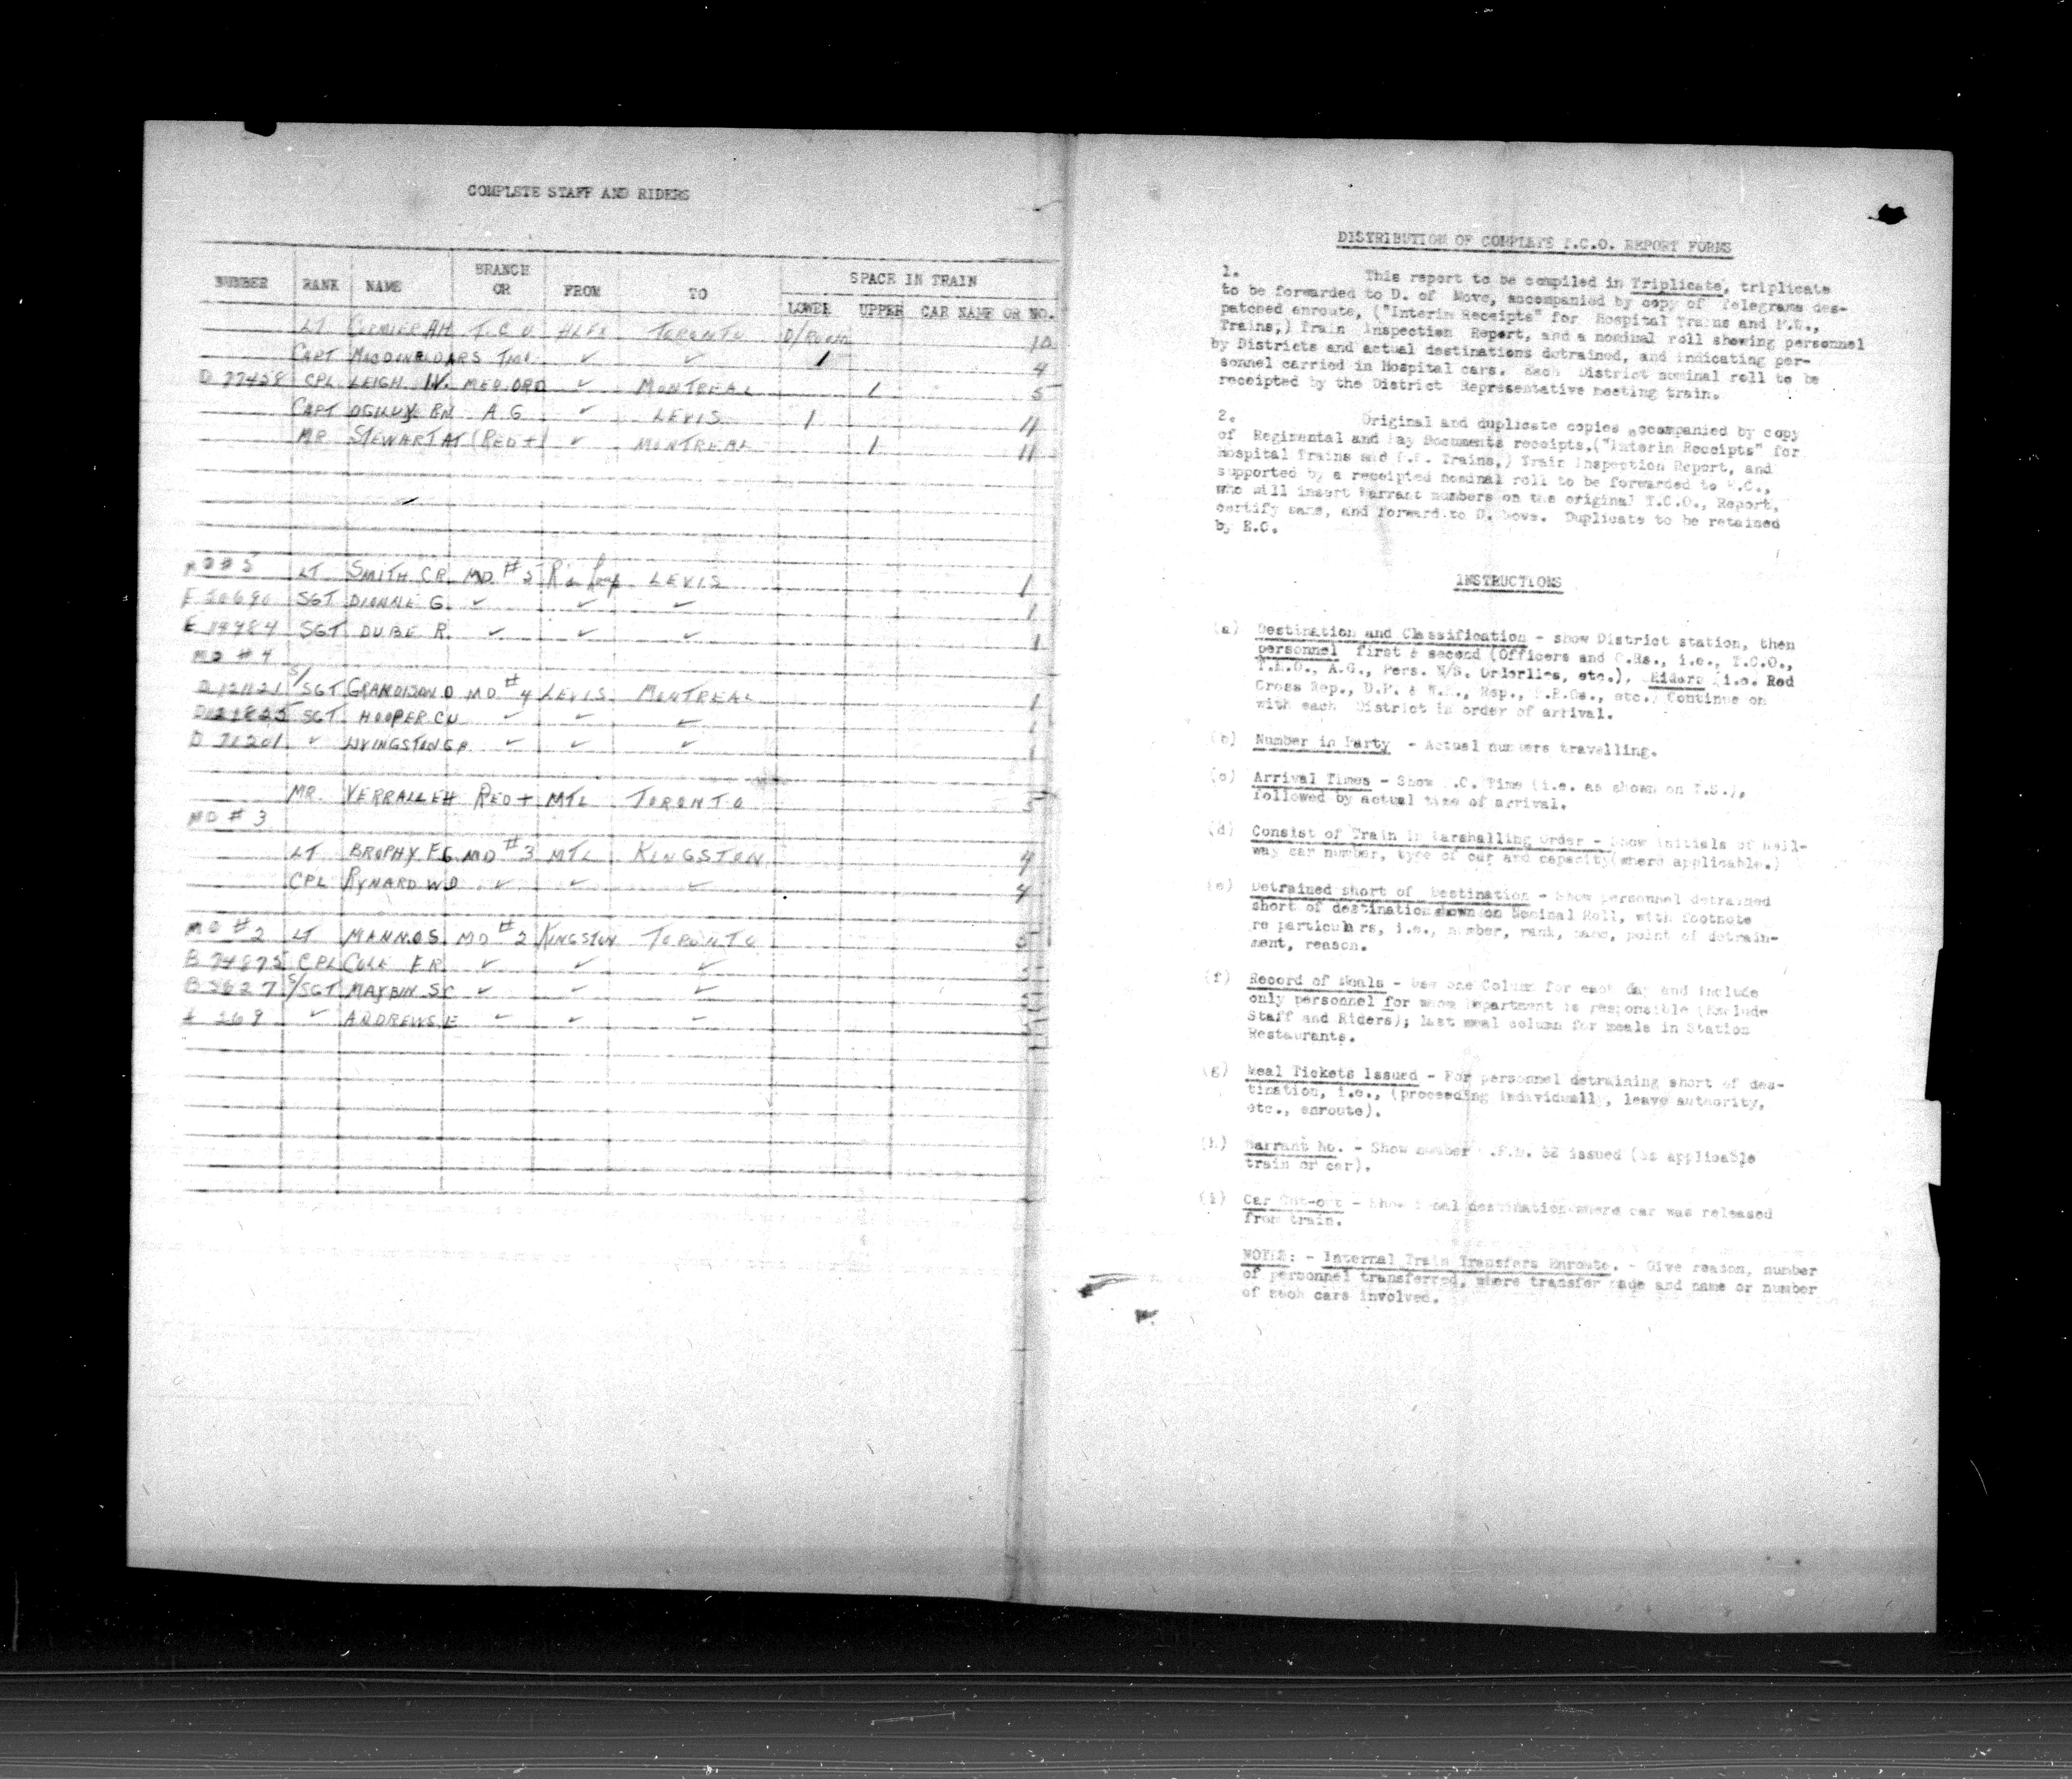 COMPLETE STAFF AND RIDERS
NUMBER RANK NAME BRANCH OR FROM TO SPACE IN TRAIN
LOWER UPPER CAR NAME OR NO.
LT CORMIER AH T.C.O HLFX TORONTO D/ROOM 10
CAPT MACDONALD ARS ✓ ✓ 1 4
D 77458 CPL LEIGH W. MED ORD ✓ MONTREAL 1 5
CAPT OGILVY RN A G ✓ LEVIS 1 4
MR STEWART AT (RED +) ✓ MONTREAL 1 11
MD # 5 LT SMITH C.R. MD #5 LEVIS 1
SGT DIONNE G. ✓ ✓ ✓ 1
E SGT DUBE R. ✓ ✓ ✓ 1
MD # 4
S/SGT GRANDISON D MD #4 LEVIS MONTREAL 1
SGT HOOPER CV ✓ ✓ ✓ 1
D 71201 ✓ LIVINGSTON GA ✓ ✓ ✓ 1
MR. VERRALL EH RED + MTL TORONTO 5
MD # 3
LT BROPHY FG MD #3 MTL KINGSTON 4
CPL RYNARD WD ✓ ✓ ✓ 4
MD #2 LT MANN.O.S. MD #2 KINGSTON TORONTO
B 74875 CPL COLE F R. ✓ ✓ ✓
B 3627 S/SGT MAYBIN SC ✓ ✓ ✓
269 ✓ ANDREWS E ✓ ✓ ✓
DISTRIBUTION OF COMPLETE T.C.O. REPORT FORMS
1. This report to be compiled in Triplicate, triplicate
to be forwarded to D. of Move, accompanied by copy of Telegrams des-
patched enroute, ("Interim Receipts" for Hospital Trains and P.W.,
Trains,) Train Inspection Report, and a nominal roll showing personnel
by Districts and actual destinations detrained, and indicating per-
sonnel carried in Hospital cars. Each District nominal roll to be
receipted by the District Representative meeting train.
2. Original and duplicate copies accompanied by copy
of Regimental and Pay Documents receipts,("Interim Receipts" for
Hospital Trains and P.W. Trains,) Train Inspection Report, and
supported by a receipted nominal roll to be forwarded to E.C.,
who will insert Warrant numbers on the original T.C.O., Report,
certify same, and forward to D. Move. Duplicate to be retained
by E.C.
INSTRUCTIONS
(a) Destination and Classification - show District station, then
personnel first & second (Officers and O.Rs., i.e., T.C.O.,
T.M.O., A.G., Pers. N/S. Orderlies, etc.), Riders (i.e. Red
Cross Rep., D.P. & Rep., etc. Continue on
with each District in order of arrival.
(b) Number in Party - Actual numbers travelling.
(c) Arrival Times - Show .C. Time (i.e. as shown on T.S.),
followed by actual time of arrival.
(d) Consist of Train in Marshalling Order - Show initials of Rail-
way car number, type of car and capacity(where applicable.)
(e) Detrained short of Destination - Show personnel detrained
short of destination shown on Nominal Roll, with footnote
re particulars, i.e., number, rank, name, point of detrain-
ment, reason.
(f) Record of Meals - Use one Column for each day and include
only personnel for whom Department is responsible (Exclude
Staff and Riders); last meal column for meals in Station
Restaurants.
(g) Meal Tickets Issued - For personnel detraining short of des-
tination, i.e., (proceeding individually, leave authority,
etc., enroute).
(h) Warrant No. - Show number issued (as applicable
train or car).
(i) Car Cut-out - Show final destination where car was released
from train.
NOTE: - Internal Train Transfers Enroute. - Give reason, number
of personnel transferred, where transfer made and name or number
of such cars involved.